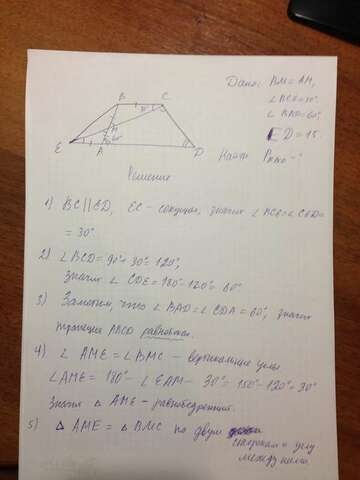 B C
30°
M
60°
E A D
Дано: BM = AM,
∠BCE = 30°
∠BAD = 60°,
ED = 15.
Найти
Решение
1) BC || ED, EC - секущая, значит ∠BCE = ∠CED =
= 30°
2) ∠BCD = 90° + 30° = 120°,
значит ∠CDE = 180° - 120° = 60°
3) Заметим, что ∠BAD = ∠CDA = 60°, значит
трапеция равнобок.
4) ∠AME = ∠BMC - вертикальные углы
∠AME = 180° - ∠EAM - 30° = 150° - 120° = 30°
Значит △AME - равнобедренный.
5) △AME = △BMC по двум
сторонам и углу
между ними